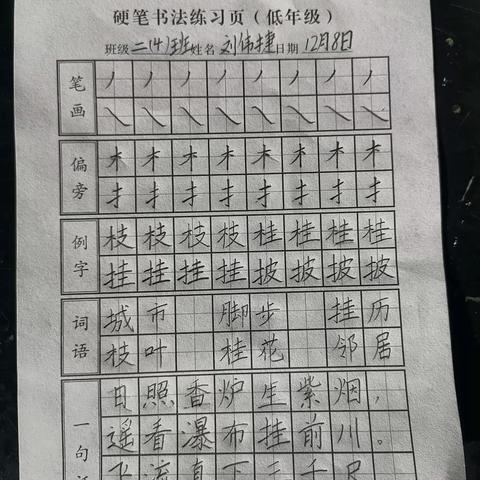 硬笔书法练习页（低年级）
班级 二(4)班 姓名 刘伟捷 日期 12月8日
笔画 丿 丿 丿 丿 丿 丿 丿 丿
㇏ ㇏ ㇏ ㇏ ㇏ ㇏ ㇏ ㇏
偏旁 木 木 木 木 木 木 木 木
扌 扌 扌 扌 扌 扌 扌 扌
例字 枝 枝 枝 枝 桂 桂 桂 桂
挂 挂 挂 挂 披 披 披 披
词语 城市 脚步 挂历
枝叶 桂花 邻居
一句 日照香炉生紫烟，
遥看瀑布挂前川。
飞流直下三千尺